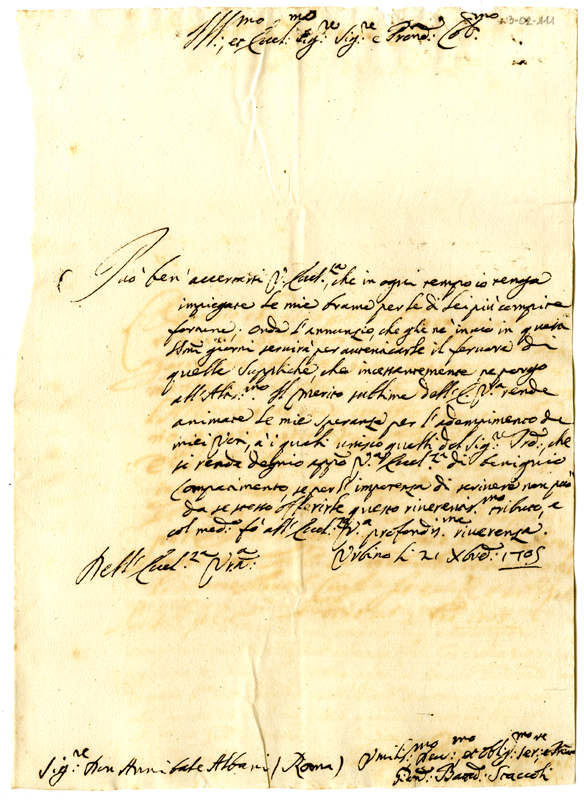 3-02-111
Ill:mo et Eccl:mo Sig:re Sig:re e Pron: Col:mo
Può ben' accertarsi V: Eccl:za, che in ogni tempo io tenga
impiegate le mie brame per le di Lei più compite
fortune; Onde l'annunzio, che ghe ne invio in questi
SSmi giorni servirà per autenticarle il fervore di
quelle suppliche, che incessantemente ne porgo
all'Altis:mo Il merito sublime dell'E: V:ra rende
animate le mie speranze per l'adempimento de
miei Voti, à i quali unisco quelli del Sig:r Pre: che
si rende degnio appo V:ra Eccl:za di benignio
Compatimento, se per l'impotenza di scrivere non può
da se stesso offerirle questo riverentis:mo tributo, e
col med:o fò all'Eccl:za V:a profondis:ma riverenza.
Dell' Eccl:za V:ra: Urbino li 21 Xbre: 1705
Sig:re Don Annibale Albani (Roma) Umilis:mo Dev:mo, et Oblig:mo Ser:re
Staccoli